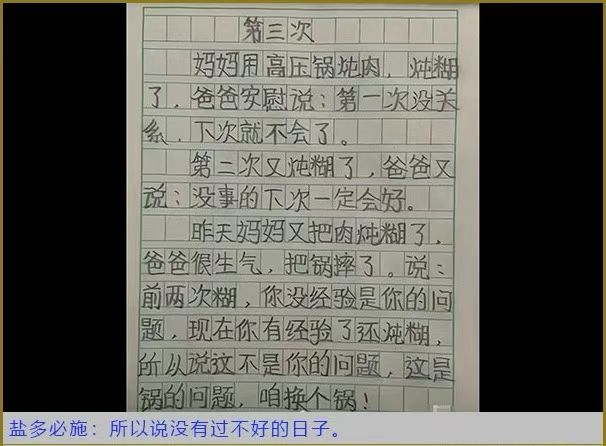 第三次
妈妈用高压锅炖肉，炖糊
了，爸爸安慰说：第一次没关
系，下次就不会了。
第二次又炖糊了，爸爸又
说：没事的下次一定会好。
昨天妈妈又把肉炖糊了，
爸爸很生气，把锅摔了。说：
前两次糊，你没经验是你的问
题，现在你有经验了还炖糊，
所以说这不是你的问题，这是
锅的问题，咱换个锅！
盐多必施：所以说没有过不好的日子。